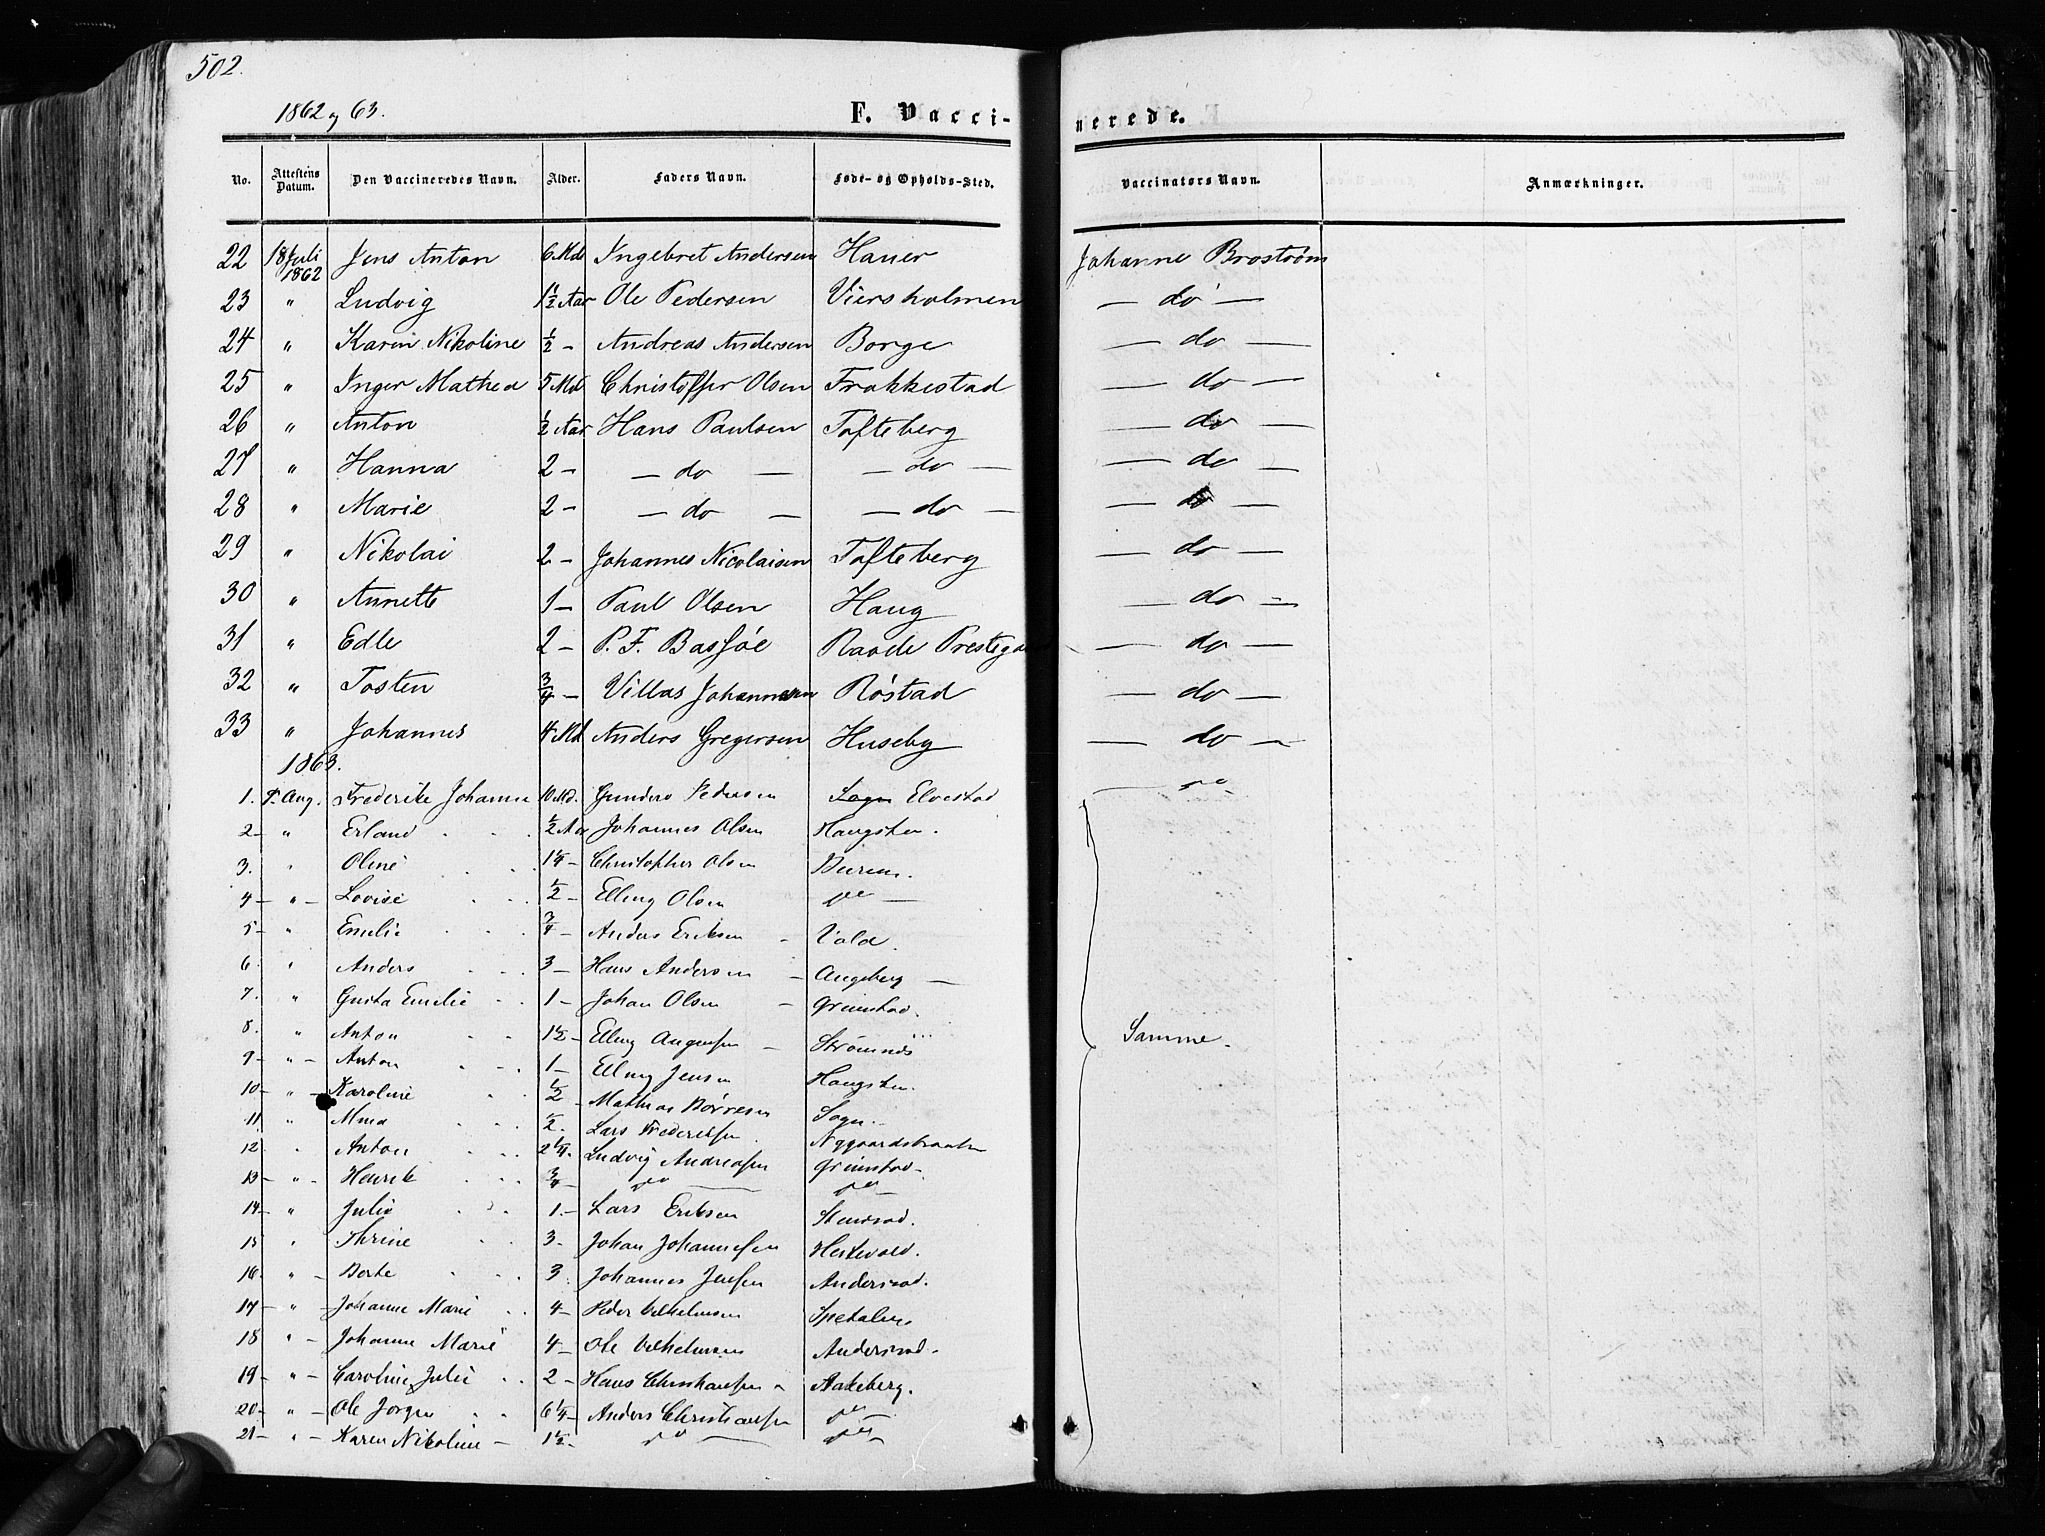 502.
1862 og 63.
F. Vacci-nerede.
No. Attestens Datum. Den Vaccineredes Navn. Alder. Faders Navn. Føde- og Opholds-Sted. Vaccinatørs Navn. Anmærkninger.
22 18 Juli 1862 Jens Anton 6 Md Ingebret Andersen Hauer Johanne Brostrøm
23 " Ludvig 1 1/2 Aar Ole Pedersen Viersholmen — do —
24 " Karin Nikoline 1/2 - Andreas Andersen Borge — do —
25 " Inger Mathea 5 Md Christoffer Olsen Frokkestad — do —
26 " Anton 1/2 Aar Hans Paulsen Tofteberg — do —
27 " Hanna 2 - — do — — do — — do —
28 " Marie 2 - — do — — do — — do —
29 " Nikolai 2 - Johannes Nicolaisen Tofteberg — do —
30 " Annette 1 - Paul Olsen Haug — do —
31 " Edle 2 - P. F. Bassøe Raade Prestega — do —
32 " Tosten 3/4 - Villas Johannesen Røstad — do —
33 " Johannes 4 Md Anders Gregersen Huseby — do —
1863.
1. Aug. Frederikke Johanne 10 Md. Gunders Pedersen Sogn Elvestad — do
2 - " Erland 1/2 Aar Johannes Olsen Haugsten.
3. " Oline 1 1/4 - Christopher Olsen
4 - " - Lovise 1/2 - Elling Olsen do —
5 - " Emilie 3/4 - Anders Eriksen - Vold.
6. " Anders 3 - Hans Andersen - Augeberg —
7. " Gusta Emilie 1 - Johan Olsen - Grimstad.
8. " Anton 1 1/2 - Elling Augensen - Strømnes
9 - " - Anton 1 - Elling Jensen Haugsten.
Samme.
10 - " - Karoline 1/2 - Mathias Børresen Sogn.
11. " Mina 1/2. Lars Frederiksen Nygaardsbraaten
12. " Anton 2 1/4. Ludvig Andreasen Grimstad -
13 - " - Henrik 3/4 - do — do -
14 - " Julie 1. - Lars Eriksen Stensrød.
15 " Thrine 3 - Johan Johannesen Hestevold.
16. " - Berte 3. Johannes Jensen Andersrød.
17 - " - Johanne Marie 4 - Peder Vilhelmsen Spetalen
18 " - Johanne Marie 4 - Ole Vilhelmsen Andersrød.
19 - " - Caroline Julie 2 - Hans Christiansen - Aakeberg.
20 - " - Ole Jørgen 6 1/4 - Anders Christiansen do —
21 - " - Karen Nikoline - 1 1/2 - do — do -